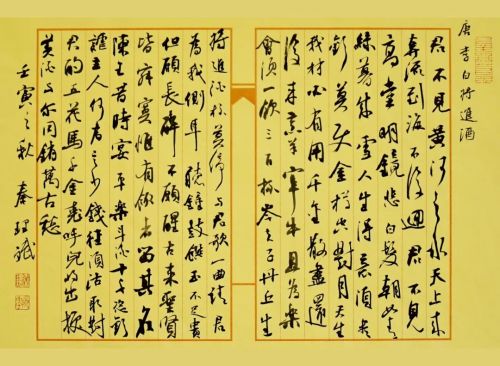 唐李白將進酒
君不見黃河之水天上來
奔流到海不復迴君不見
高堂明鏡悲白髮朝如青
絲暮成雪人生得意須盡
歡莫使金樽空對月天生
我材必有用千金散盡還
復來烹羊宰牛且為樂
會須一飲三百杯岑夫子丹丘生
將進酒杯莫停與君歌一曲請君
為我側耳聽鐘鼓饌玉不足貴
但願長醉不願醒古來聖賢
皆寂寞惟有飲者留其名
陳王昔時宴平樂斗酒十千恣歡
謔主人何為言少錢徑須沽取對
君酌五花馬千金裘呼兒將出換
美酒與爾同銷萬古愁
壬寅之秋 秦